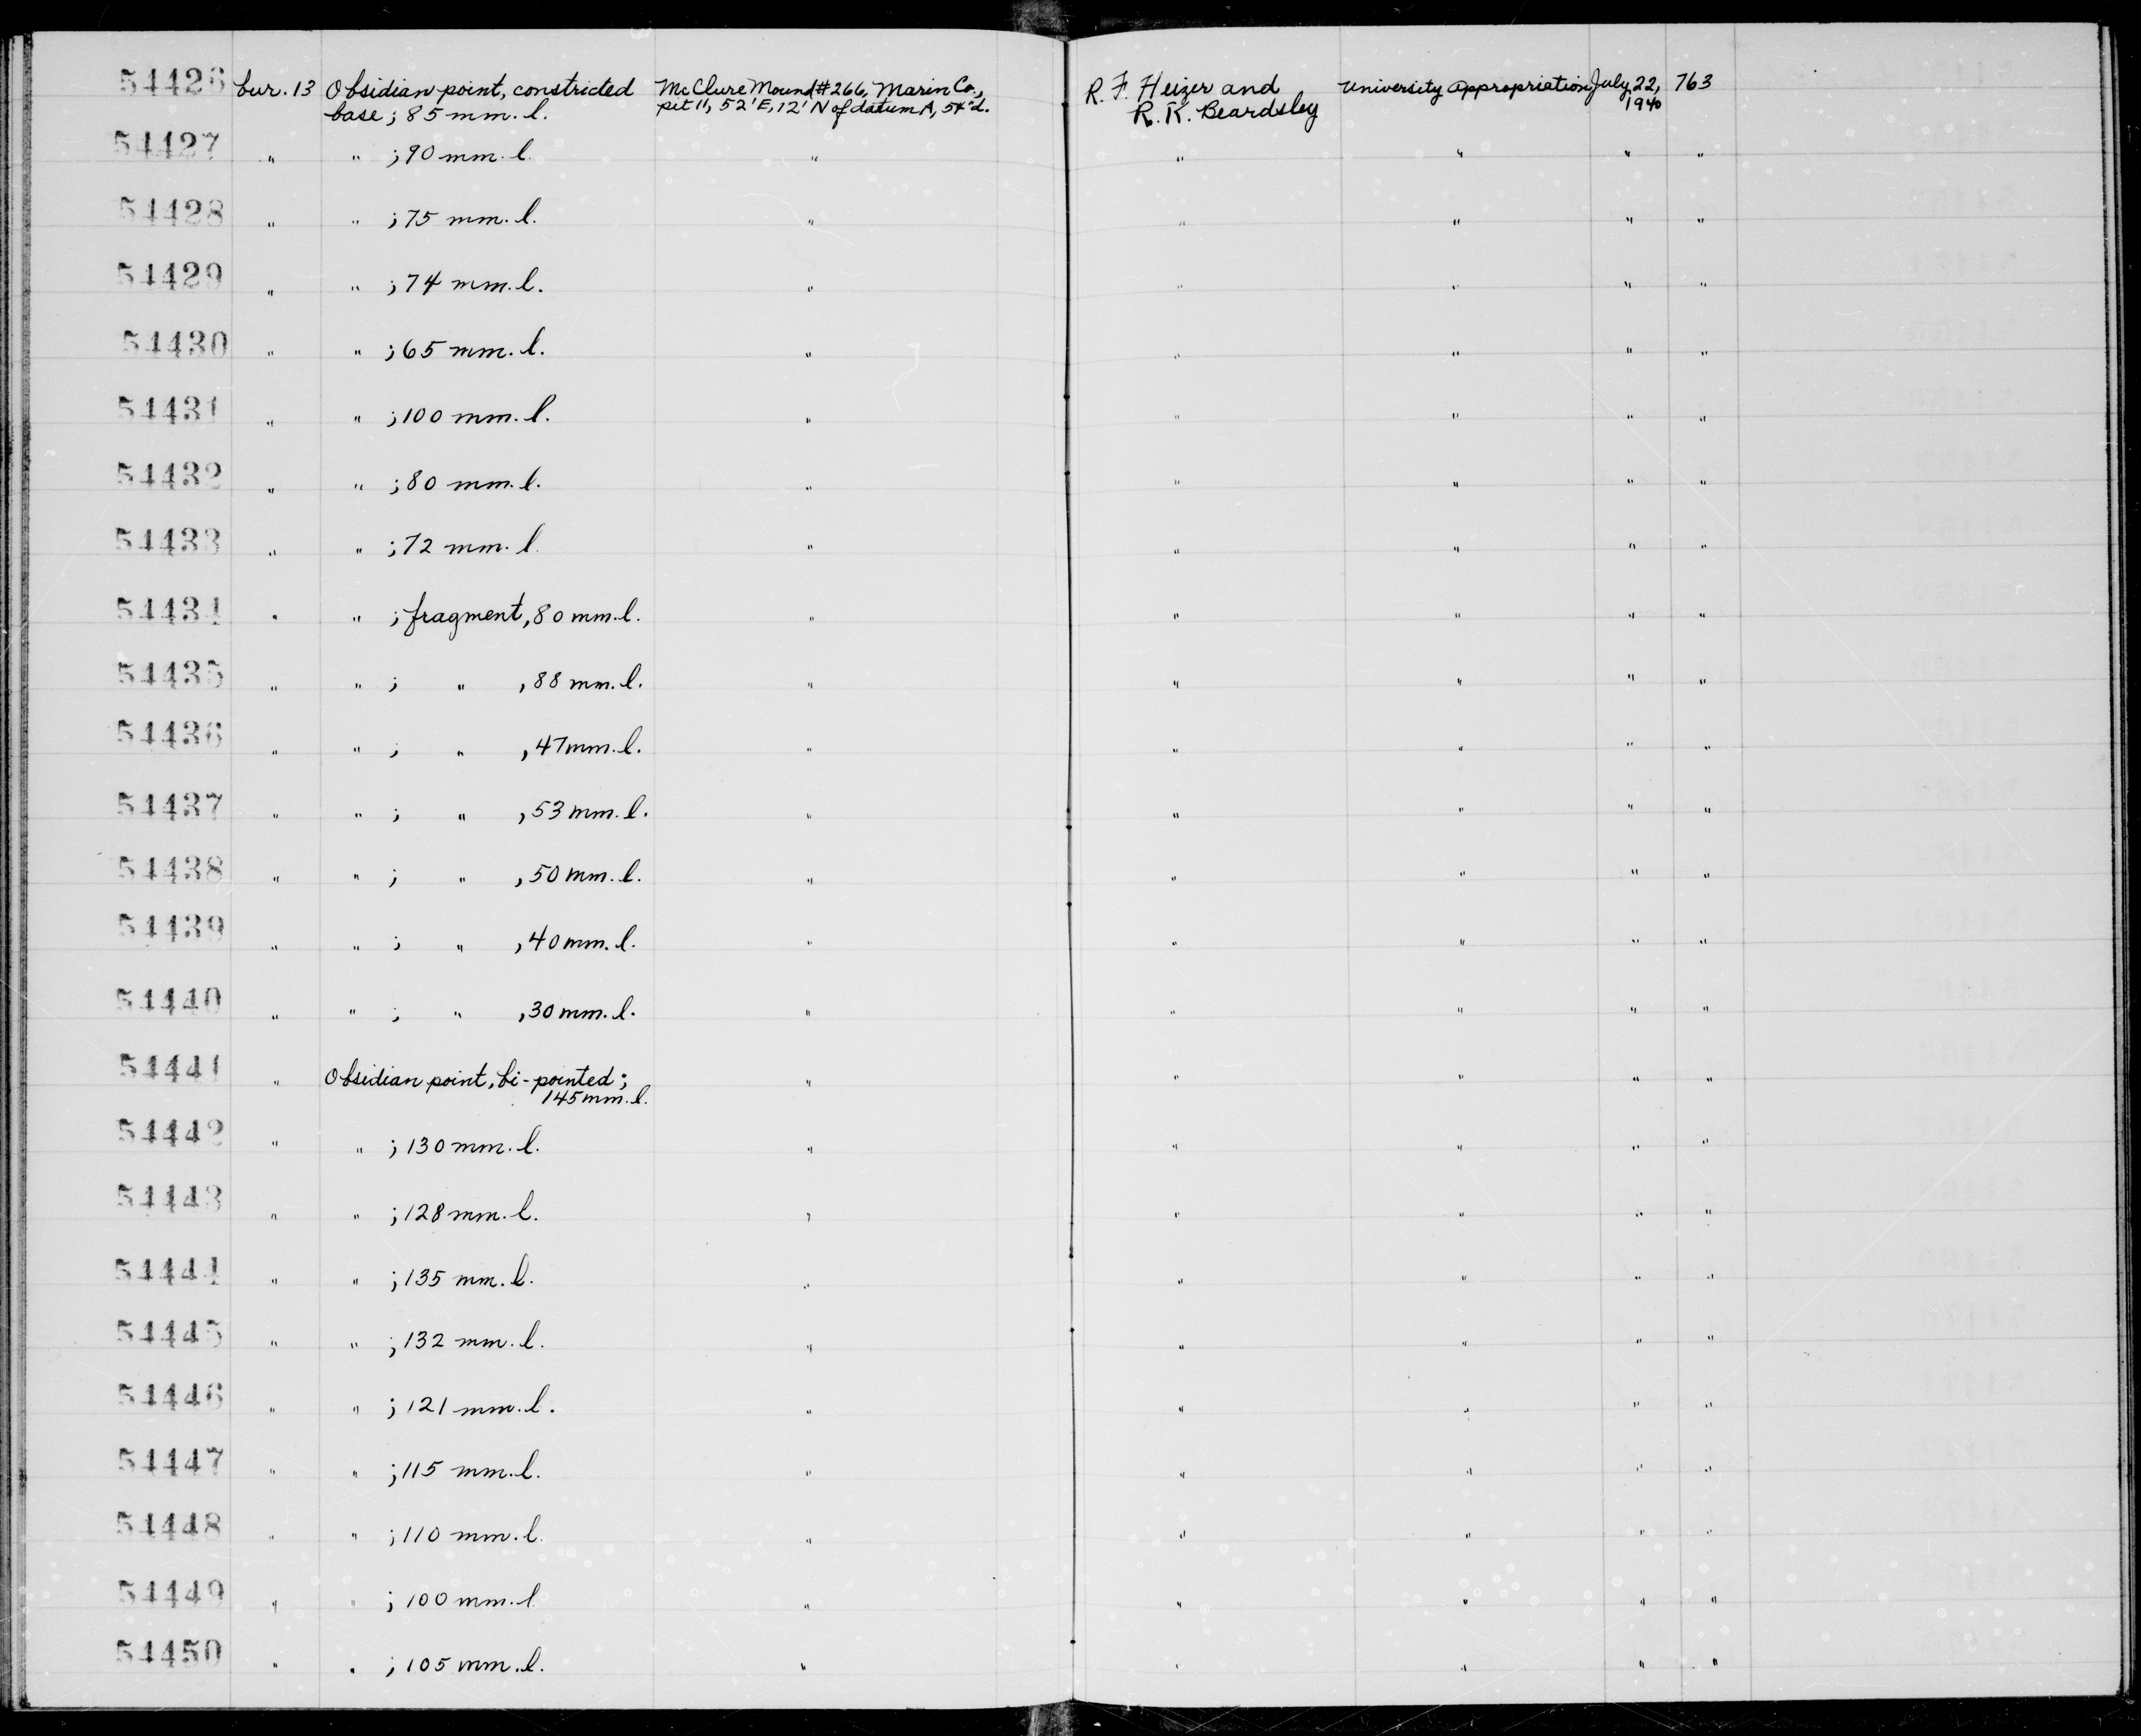 54426 bur. 13 Obsidian point, constricted McClure Mound #266, Marin Co., R. F. Heizer and University Appropriation July 22, 763
base; 85 mm. l. pit 11, 52' E, 12' N of datum A, 54" d. R. K. Beardsley 1940
54427 " " ; 90 mm. l. " " " " "
54428 " " ; 75 mm. l. " " " " "
54429 " " ; 74 mm. l. " " " " "
54430 " " ; 65 mm. l. " " " " "
54431 " " ; 100 mm. l. " " " " "
54432 " " ; 80 mm. l. " " " " "
54433 " " ; 72 mm. l. " " " " "
54434 " " ; fragment, 80 mm. l. " " " " "
54435 " " ; " , 88 mm. l. " " " " "
54436 " " ; " , 47 mm. l. " " " " "
54437 " " ; " , 53 mm. l. " " " " "
54438 " " ; " , 50 mm. l. " " " " "
54439 " " ; " , 40 mm. l. " " " " "
54440 " " ; " , 30 mm. l. " " " " "
54441 " Obsidian point, bi-pointed; " " " " "
145 mm. l.
54442 " " ; 130 mm. l. " " " " "
54443 " " ; 128 mm. l. " " " " "
54444 " " ; 135 mm. l. " " " " "
54445 " " ; 132 mm. l. " " " " "
54446 " " ; 121 mm. l. " " " " "
54447 " " ; 115 mm. l. " " " " "
54448 " " ; 110 mm. l. " " " " "
54449 " " ; 100 mm. l " " " " "
54450 " " ; 105 mm. l. " " " " "